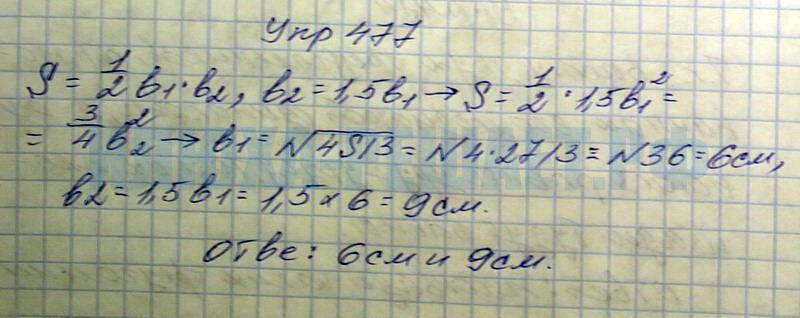 Упр 477
S = 1/2 в₁·в₂, в₂ = 1,5в₁ → S = 1/2 · 1,5в₁² =
= 3/4 в₂² → в₁ = √4S/3 = √4·27/3 = √36 = 6см,
в2 = 1,5в1 = 1,5 × 6 = 9см.
Отве: 6см и 9см.